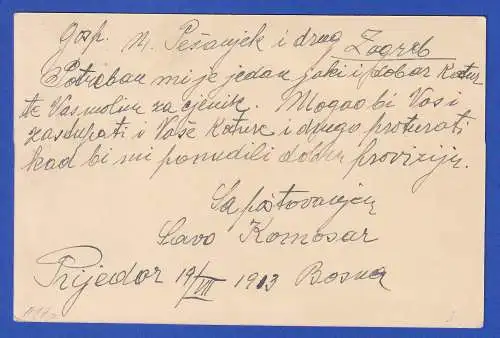 Gosp. N. Pešanjek i drug Zagreb
Potreban mi je jedan jaki i dobar Kotur-
te Vas molim za cjenik. Mogao bi Vas i
zastupati i Vaše Koture i drugo proturati
kad bi mi ponudili dobru proviziju.
Sa poštovanjem
Savo Komosar
Prijedor 19/VII 1913 Bosna